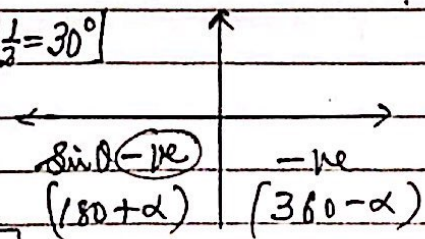 1/2 = 30°
sinθ -ve -ve
(180+α) (360-α)